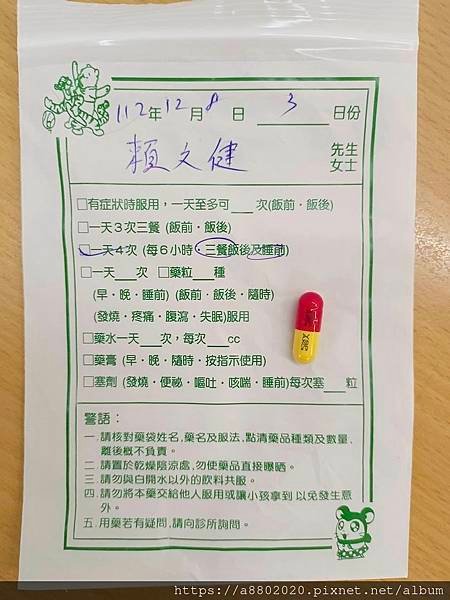 112年12月8日 3 日份
賴文健 先生
女士
□有症狀時服用，一天至多可___次(飯前・飯後)
□一天3次三餐 (飯前・飯後)
□一天4次 (每6小時・三餐飯後及睡前)
□一天___次 □藥粒___種
(早・晚・睡前) (飯前・飯後・隨時)
(發燒・疼痛・腹瀉・失眠)服用
□藥水一天___次，每次___cc
□藥膏 (早・晚・隨時・按指示使用)
□塞劑 (發燒・便祕・嘔吐・咳喘・睡前)每次塞___粒
警語：
一.請核對藥袋姓名,藥名及服法,點清藥品種類及數量,
離後概不負責。
二.請置於乾燥陰涼處,勿使藥品直接曝晒。
三.請勿與白開水以外的飲料共服。
四.請勿將本藥交給他人服用或讓小孩拿到 以免發生意
外。
五.用藥若有疑問,請向診所詢問。
https://a8802020.pixnet.net/album